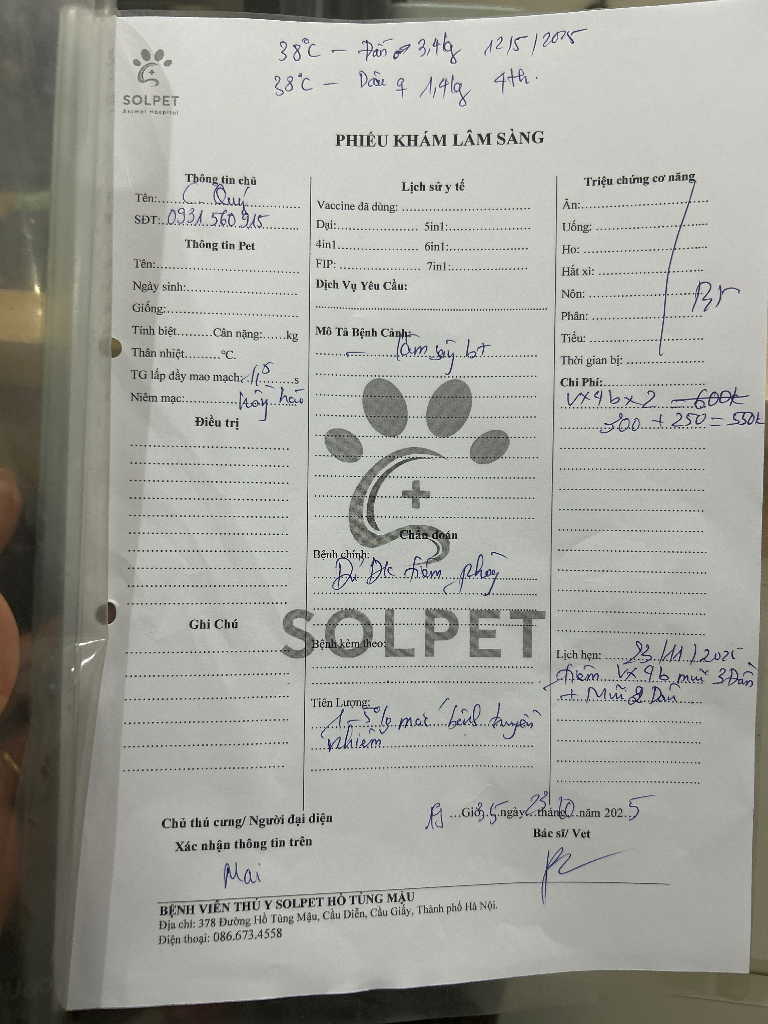 38°C – Dần ♂ 3,4kg 12/5/2025
38°C – Dâu ♀ 1,4kg 4th.
SOLPET
Animal Hospital
PHIẾU KHÁM LÂM SÀNG
Thông tin chủ
Tên: C. Quý
SĐT: 0931.560.915
Thông tin Pet
Tên:
Ngày sinh:
Giống:
Tính biệt Cân nặng: kg
Thân nhiệt °C.
TG lấp đầy mao mạch: s
Niêm mạc: hồng hào
Điều trị
Ghi Chú
Lịch sử y tế
Vaccine đã dùng:
Dại: 5in1:
4in1 6in1:
FIP: 7in1:
Dịch Vụ Yêu Cầu:
Mô Tả Bệnh Cảnh:
– lâm sàng bt
Chẩn đoán
Bệnh chính:
Đủ Đk tiêm phòng
SOLPET
Bệnh kèm theo:
Tiên Lượng:
1-5% mắc bệnh truyền
nhiễm
Triệu chứng cơ năng
Ăn:
Uống:
Ho:
Hắt xì:
Nôn: Bt
Phân:
Tiểu:
Thời gian bị:
Chi Phí:
Vx4b x 2 = 600k
300 + 250 = 550k
Lịch hẹn: 23/11/2025
tiêm Vx 4b mũi 3 Dần
+ Mũi 2 Dâu
Giờ 35 ngày 23 tháng 10 năm 2025
Chủ thú cưng/ Người đại diện
Xác nhận thông tin trên
Mai
Bác sĩ/ Vet
BỆNH VIỆN THÚ Y SOLPET HỒ TÙNG MẬU
Địa chỉ: 378 Đường Hồ Tùng Mậu, Cầu Diễn, Cầu Giấy, Thành phố Hà Nội.
Điện thoại: 086.673.4558